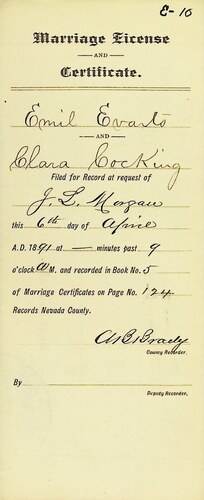 E-10
Marriage License
AND
Certificate.
Emil Evarts
AND
Clara Cocking
Filed for Record at request of
J. L. Morgan
this 6th day of April
A.D. 1891 at — minutes past 9
o'clock A M. and recorded in Book No. 5
of Marriage Certificates on Page No. 124
Records Nevada County.
A B Brady
County Recorder.
By
Deputy Recorder.